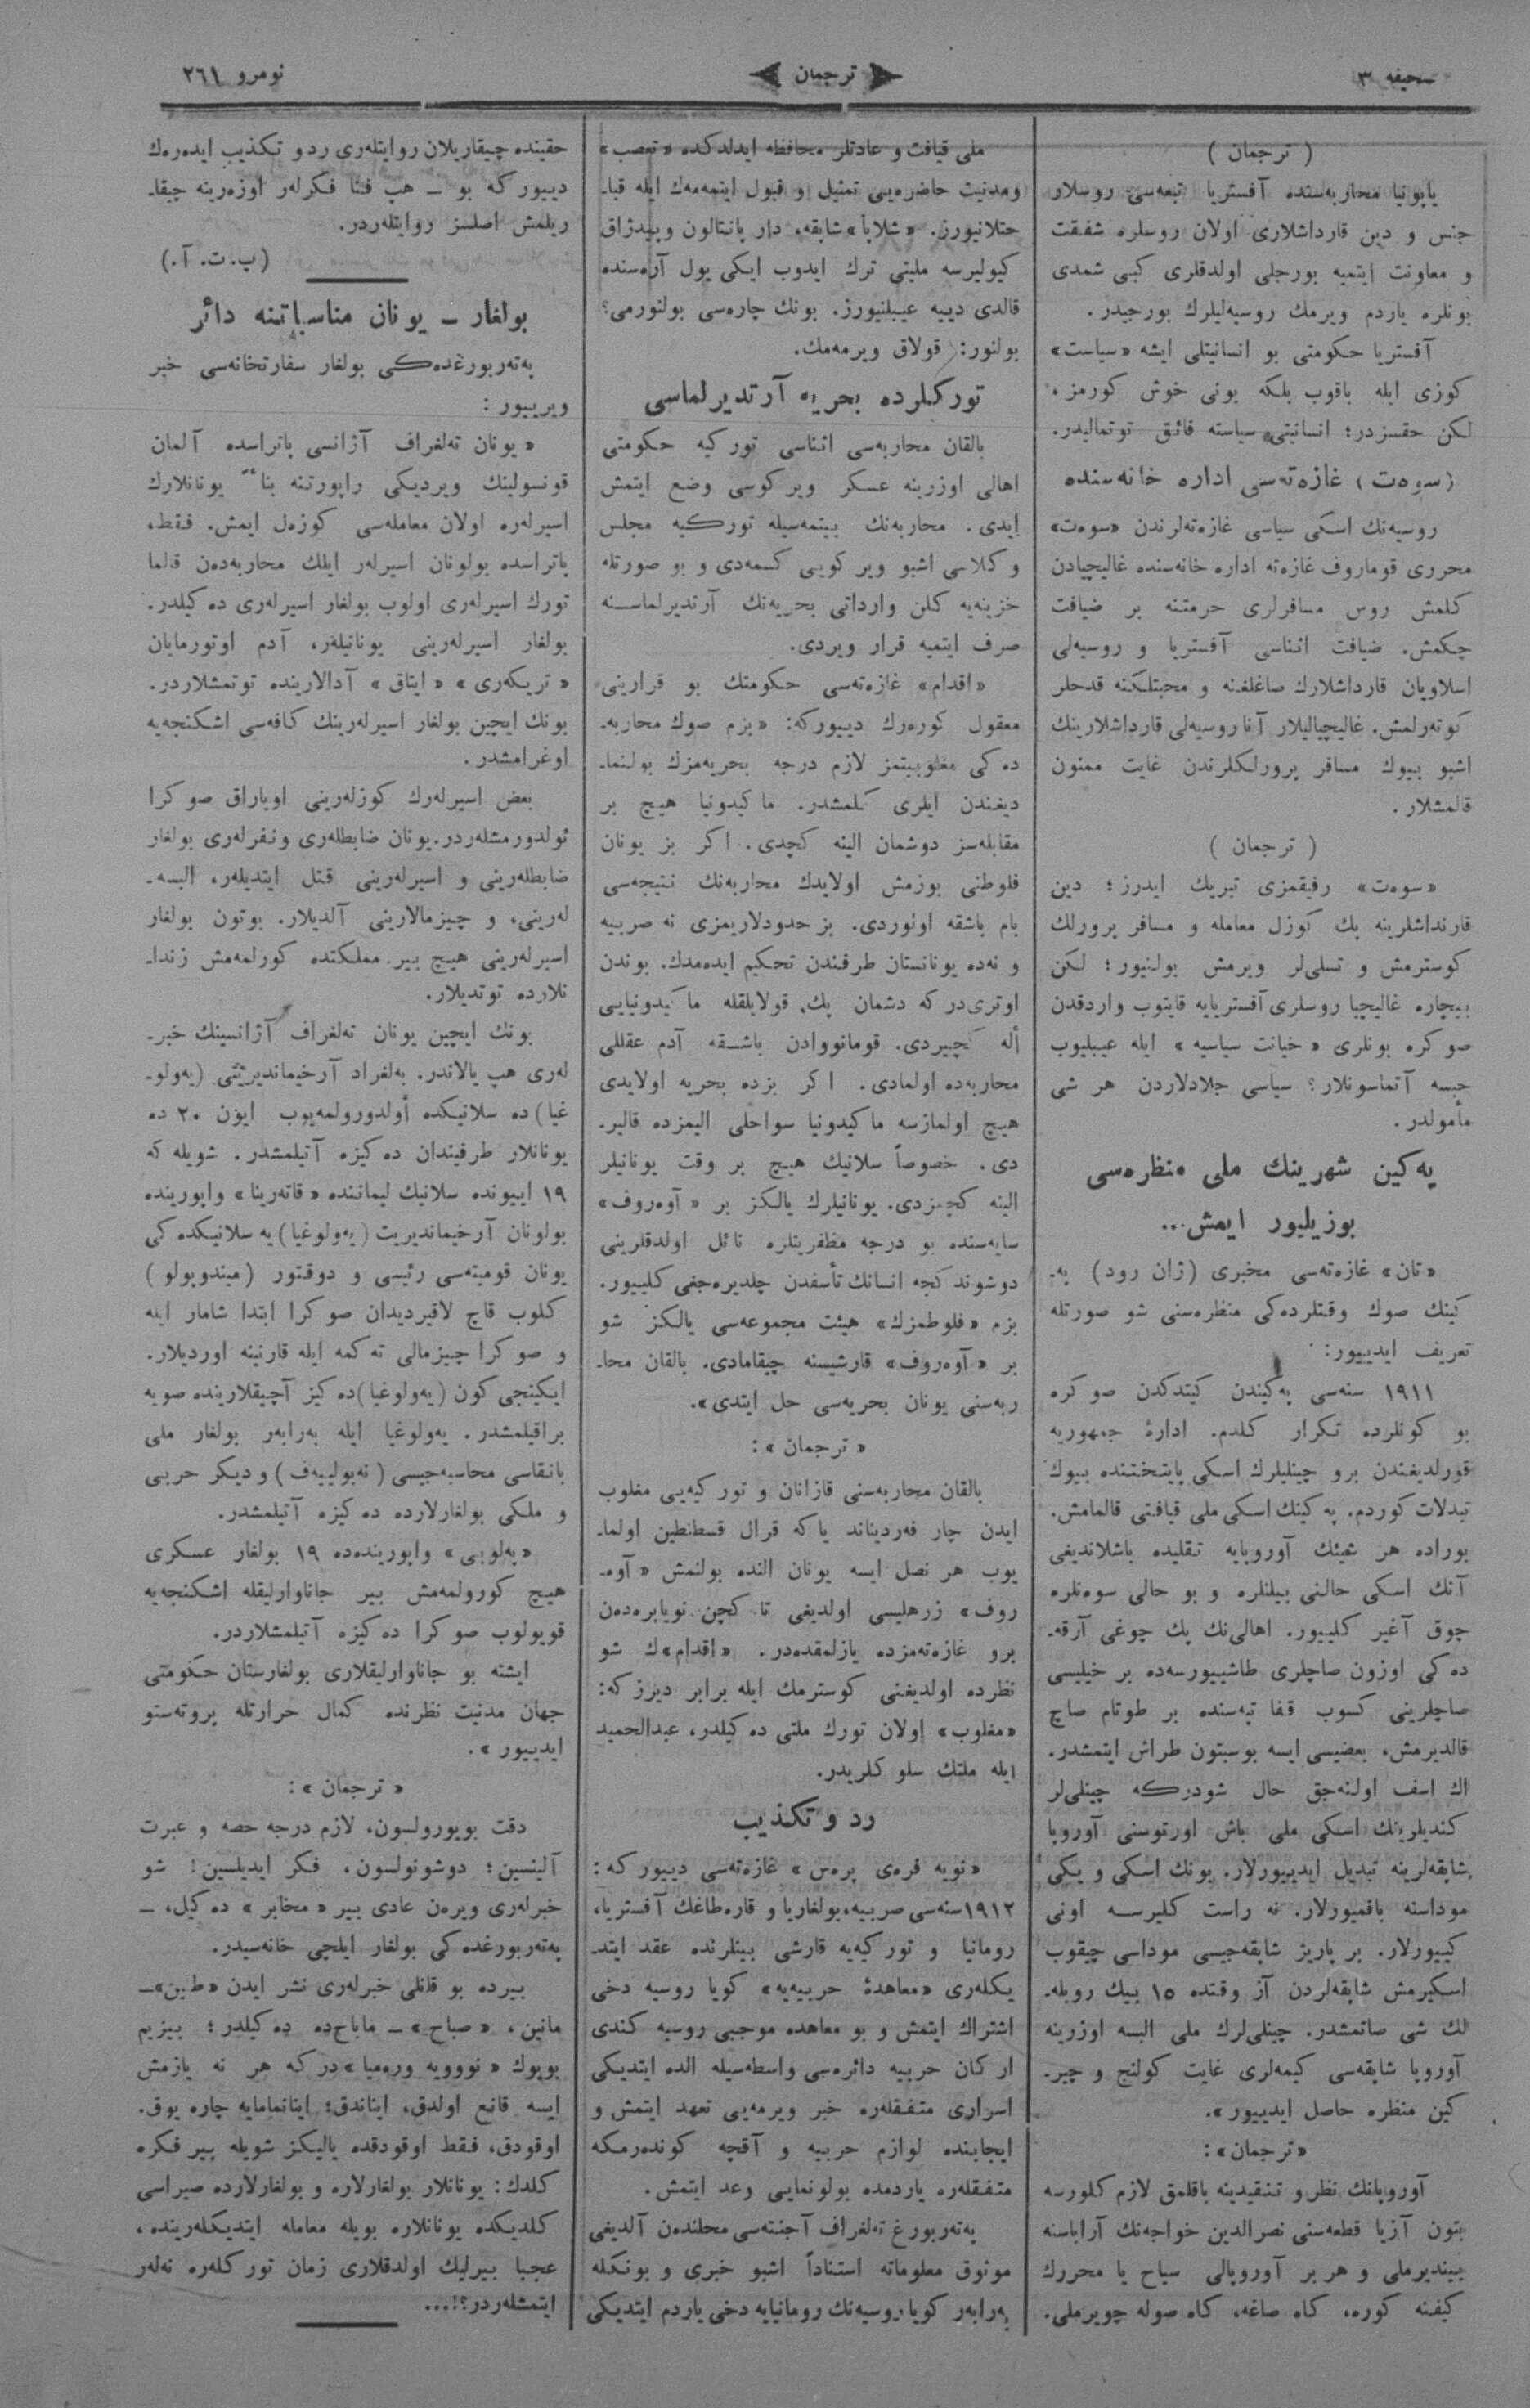 صحیفه ۳
ترجمان
نومرو ۲٦۱
( ترجمان )
یاپونیا محاربه‌سنده آفستریا تبعه‌سی روسلار
جنس و دین قارداشلاری اولان روسلره شفقت
و معاونت ایتمیه بورجلی اولدقلری کبی شمدی
بونلره یاردم ویرمك روسیه‌لیلرك بورجیدر.
آفستریا حکومتی بو انسانیتلی ایشه «سیاست»
کوزی ایله باقوب بلکه بونی خوش کورمز،
لکن حقسزدر؛ انسانیتی سیاسته فائق توتمالیدر.
(سوه‌ت) غازه‌ته‌سی اداره خانه‌سنده
روسیه‌نك اسکی سیاسی غازه‌ته‌لرندن «سوه‌ت»
محرری قوماروف غازه‌ته اداره خانه‌سنده غالیچیادن
کلمش روس مسافرلری حرمتنه بر ضیافت
چکمش. ضیافت اثناسی آفستریا و روسیه‌لی
اسلاویان قارداشلارك صاغلغنه و محبتلکنه قدحلر
کوته‌رلمش. غالیچیالیلار آنا روسیه‌لی قارداشلارینك
اشبو بیوك مسافر پرورلکلرندن غایت ممنون
قالمشلار.
( ترجمان )
«سوه‌ت» رفیقمزی تبریك ایدرز؛ دین
قارنداشلرینه پك کوزل معامله و مسافر پرورلك
کوسترمش و تسلی‌لر ویرمش بولنیور؛ لکن
بیچاره غالیچیا روسلری آفستریایه قایتوب واردقدن
صوکره بونلری «خیانت سیاسیه» ایله عیبلیوب
حبسه آتماسونلار؟ سیاسی جلادلاردن هر شی
مأمولدر.
په‌کین شهرینك ملی منظره‌سی
بوزیلیور ایمش...
«تان» غازه‌ته‌سی مخبری (ژان رود) په‌ـ
کینك صوك وقتلرده‌کی منظره‌سنی شو صورتله
تعریف ایدییور:
۱۹۱۱ سنه‌سی په‌کیندن کیتدکدن صوکره
بو کونلرده تکرار کلدم. ادارۀ جمهوریه
قورلدیغندن برو چینلیلرك اسکی پایتختنده بیوك
تبدلات کوردم. په‌کینك اسکی ملی قیافتی قالمامش.
بوراده هر شیئك آوروپایه تقلیده باشلاندیغی
آنك اسکی حالنی بیلنلره و بو حالی سوه‌نلره
چوق آغیر کلییور. اهالی‌نك پك چوغی آرقه‌ـ
ده‌کی اوزون صاچلری طاشییورسه‌ده بر خیلیسی
صاچلرینی کسوب قفا تپه‌سنده بر طوتام صاچ
قالدیرمش، بعضیسی ایسه بوسبتون طراش ایتمشدر.
اك اسف اولنه‌جق حال شودرکه چینلی‌لر
کندیلرینك اسکی ملی باش اورتوسنی آوروپا
شاپقه‌لرینه تبدیل ایدییورلار. بونك اسکی و یکی
موداسنه باقمیورلار. نه راست کلیرسه اونی
کییورلار. بر پاریژ شاپقه‌جیسی موداسی چیقوب
اسکیرمش شاپقه‌لردن آز وقتده ۱٥ بیك روبله‌ـ
لك شی صاتمشدر. چینلی‌لرك ملی البسه اوزرینه
آوروپا شاپقه‌سی کیمه‌لری غایت کولنج و چیرـ
کین منظره حاصل ایدییور».
«ترجمان»:
آوروپانك نظر و تنقیدینه باقلمق لازم کلورسه
بتون آزیا قطعه‌سنی نصرالدین خواجه‌نك آراباسنه
بیندیرملی و هر بر آوروپالی سیاح یا محررك
کیفنه کوره، کاه صاغه، کاه صوله چویرملی.
ملی قیافت و عادتلر محافظه ایدلدکده «تعصب»
ومدنیت حاضره‌یی تمثیل و قبول ایتمه‌مه‌ك ایله قباـ
حتلانیورز. «شلاپا» شاپقه، دار پانتالون وپیدژاق
کیولیرسه ملیتی ترك ایدوب ایکی یول آره‌سنده
قالدی دییه عیبلنیورز. بونك چاره‌سی بولنورمی؟
بولنور: قولاق ویرمه‌مك.
تورکلرده بحریه آرتدیرلماسی
بالقان محاربه‌سی اثناسی تورکیه حکومتی
اهالی اوزرینه عسکر ویرکوسی وضع ایتمش
ایدی. محاربه‌نك بیتمه‌سیله تورکیه مجلس
وکلاسی اشبو ویرکویی کسمه‌دی و بو صورتله
خزینه‌یه کلن وارداتی بحریه‌نك آرتدیرلماسنه
صرف ایتمیه قرار ویردی.
«اقدام» غازه‌ته‌سی حکومتك بو قرارینی
معقول کوره‌رك دییورکه: «بزم صوك محاربه‌ـ
ده‌کی مغلوبیتمز لازم درجه بحریه‌مزك بولنماـ
دیغندن ایلری کلمشدر. ماکیدونیا هیچ بر
مقابله‌سز دوشمان الینه کچدی. اکر بز یونان
فلوطنی بوزمش اولایدك محاربه‌نك نتیجه‌سی
بام باشقه اولوردی. بز حدودلاریمزی نه صربیه
و نه‌ده یونانستان طرفندن تحکیم ایده‌مدك. بوندن
اوتری‌درکه دشمان پك، قولایلقله ماکیدونیایی
أله کچیردی. قومانووادن باشقه آدم عقللی
محاربه‌ده اولمادی. اکر بزده بحریه اولایدی
هیچ اولمازسه ماکیدونیا سواحلی الیمزده قالیرـ
دی. خصوصاً سلانیك هیچ بر وقت یونانیلر
الینه کچمزدی. یونانیلرك یالکز بر «آوه‌روف»
سایه‌سنده بو درجه مظفریتلره نائل اولدقلرینی
دوشوندکجه انسانك تأسفدن چلدیره‌جغی کلییور.
بزم «فلوطمزك» هیئت مجموعه‌سی یالکز شو
بر «آوه‌روف» قارشیسنه چیقامادی. بالقان محاـ
ربه‌سنی یونان بحریه‌سی حل ایتدی».
«ترجمان»:
بالقان محاربه‌سنی قازانان و تورکیه‌یی مغلوب
ایدن چار فه‌ردیناند یاکه قرال قسطنطین اولماـ
یوب هر نصل ایسه یونان النده بولنمش «آوه‌ـ
روف» زرهلیسی اولدیغی تا کچن نویابره‌دن
برو غازه‌ته‌مزده یازلمقده‌در. «اقدام»ك شو
نظرده اولدیغنی کوسترمك ایله برابر دیرزکه:
«مغلوب» اولان تورك ملتی ده‌کیلدر، عبدالحمید
ایله ملتك سلوکلریدر.
رد و تکذیب
«نویه فره‌ی پره‌س» غازه‌ته‌سی دییورکه:
۱۹۱۲سنه‌سی صربیه،بولغاریا و قاره‌طاغك آفستریا،
رومانیا و تورکیه‌یه قارشی بینلرنده عقد ایتدـ
یکله‌ری «معاهدۀ حربیه‌یه» کویا روسیه دخی
اشتراك ایتمش و بو معاهده موجبی روسیه کندی
ارکان حربیه دائره‌سی واسطه‌سیله الده ایتدیکی
اسراری متفقله‌ره خبر ویرمه‌یی تعهد ایتمش و
ایجابنده لوازم حربیه و آقچه کونده‌رمکه
متفقله‌ره یاردمده بولونمایی وعد ایتمش.
په‌ته‌ربورغ ته‌لغراف آجنته‌سی محلندن آلدیغی
موثوق معلوماته استناداً اشبو خبری و بونکله
به‌رابه‌ر کویا روسیه‌نك رومانیایه دخی یاردم ایتدیکی
حقینده چیقاریلان روایتله‌ری ردو تکذیب ایده‌ره‌ك
دییورکه بو ـ هپ فنا فکرله‌ر اوزه‌رینه چیقاـ
ریلمش اصلسز روایتله‌ردر.
(پ. ت. آ.)
بولغار ـ یونان مناسباتنه دائر
په‌ته‌ربورغده‌کی بولغار سفارتخانه‌سی خبر
ویرییور:
«یونان ته‌لغراف آژانسی پاتراسده آلمان
قونسولینك ویردیکی راپورتنه بناءً یونانلارك
اسیرله‌ره اولان معامله‌سی کوزه‌ل ایمش. فقط،
پاتراسده بولونان اسیرله‌ر ایلك محاربه‌دن قالما
تورك اسیرله‌ری اولوب بولغار اسیرله‌ری ده‌کیلدر.
بولغار اسیرله‌رینی یونانیله‌ر، آدم اوتورمایان
«تریکه‌ری» «ایتاق» آدالارینده توتمشلاردر.
بونك ایچین بولغار اسیرله‌رینك کافه‌سی اشکنجه‌یه
اوغرامشدر.
بعض اسیرله‌رك کوزله‌رینی اویاراق صوکرا
ئولدورمشله‌ردر.یونان ضابطله‌ری ونفرله‌ری بولغار
ضابطله‌رینی و اسیرله‌رینی قتل ایتدیله‌ر، البسه‌ـ
له‌رینی، و چیزمالارینی آلدیلار. بوتون بولغار
اسیرله‌رینی هیچ بیر مملکتده کورلمه‌مش زنداـ
نلارده توتدیلار.
بونك ایچین یونان ته‌لغراف آژانسینك خبرـ
له‌ری هپ یالاندر. به‌لغراد آرخیماندیریتی (یه‌ولوـ
غیا)ده سلانیکده أولدورولمه‌یوب ایون ۲۰ ده
یونانلار طرفیندان ده‌کیزه آتیلمشدر. شویله که
۱۹ اییونده سلانیك لیماننده «قاته‌رینا» واپورینده
بولونان آرخیماندیریت (یه‌ولوغیا)یه سلانیکده‌کی
یونان قومیته‌سی رئیسی و دوقتور (میندوپولو)
کلوب قاچ لاقیردیدان صوکرا ابتدا شامار ایله
و صوکرا چیزمالی ته‌کمه ایله قارنینه اوردیلار.
ایکینجی کون (یه‌ولوغیا)ده‌کیز آچیقلارینده صویه
براقیلمشدر. یه‌ولوغیا ایله به‌رابه‌ر بولغار ملی
بانقاسی محاسبه‌جیسی (نه‌بولییه‌ف) و دیکر حربی
و ملکی بولغارلارده ده‌کیزه آتیلمشدر.
«په‌لوپی» واپورینده‌ده ۱۹ بولغار عسکری
هیچ کورولمه‌مش بیر جاناوارلیقله اشکنجه‌یه
قویولوب صوکرا ده‌کیزه آتیلمشلاردر.
ایشته بو جاناوارلیقلاری بولغارستان حکومتی
جهان مدنیت نظرنده کمال حرارتله پروته‌ستو
ایدییور».
«ترجمان»:
دقت بویورولسون، لازم درجه حصه و عبرت
آلینسین؛ دوشونولسون، فکر ایدیلسین! شو
خبرله‌ری ویره‌ن عادی بیر «مخابر» ده‌کیل، ـ
په‌ته‌ربورغده‌کی بولغار ایلچی خانه‌سیدر.
بیرده بو قانلی خبرله‌ری نشر ایدن «طنین»ـ
مانین، «صباح» ـ ماباح‌ده ده‌کیلدر؛ بیزیم
بویوك «نوویه وره‌میا»درکه هر نه یازمش
ایسه قانع اولدق، ایناندق؛ اینانمامایه چاره یوق.
اوقودق، فقط اوقودقده یالیکز شویله بیر فکره
کلدك: یونانلار بولغارلاره و بولغارلارده صیراسی
کلدیکده یونانلاره بویله معامله ایتدیکله‌رینده،
عجبا بیرلیك اولدقلاری زمان تورکله‌ره نه‌لر
ایتمشله‌ردر؟!...